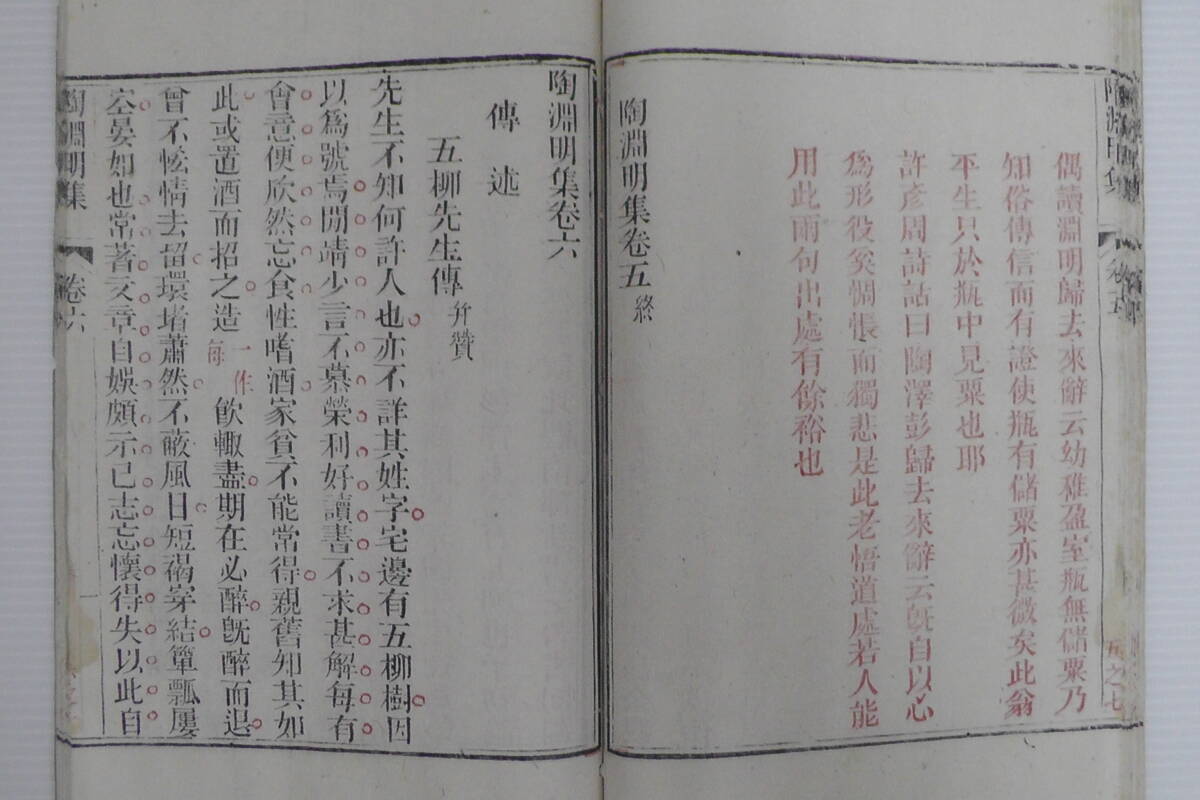 偶讀淵明歸去來辭云幼稚盈室瓶無儲粟乃
知俗傳信而有證使瓶有儲粟亦甚微矣此翁
平生只於瓶中見粟也耶
許彥周詩話曰陶澤彭歸去來辭云旣自以心
爲形役奚惆悵而獨悲是此老悟道處若人能
用此兩句出處有餘裕也
陶淵明集卷五 終
陶淵明集卷六
傳述
五柳先生傳 幷贊
先生不知何許人也亦不詳其姓字宅邊有五柳樹因
以爲號焉閒靖少言不慕榮利好讀書不求甚解每有
會意便欣然忘食性嗜酒家貧不能常得親舊知其如
此或置酒而招之造 一作每 飮輒盡期在必醉旣醉而退
曾不恡情去留環堵蕭然不蔽風日短褐穿結簞瓢屢
空晏如也常著文章自娛頗示己志忘懷得失以此自
陶淵明集 卷六